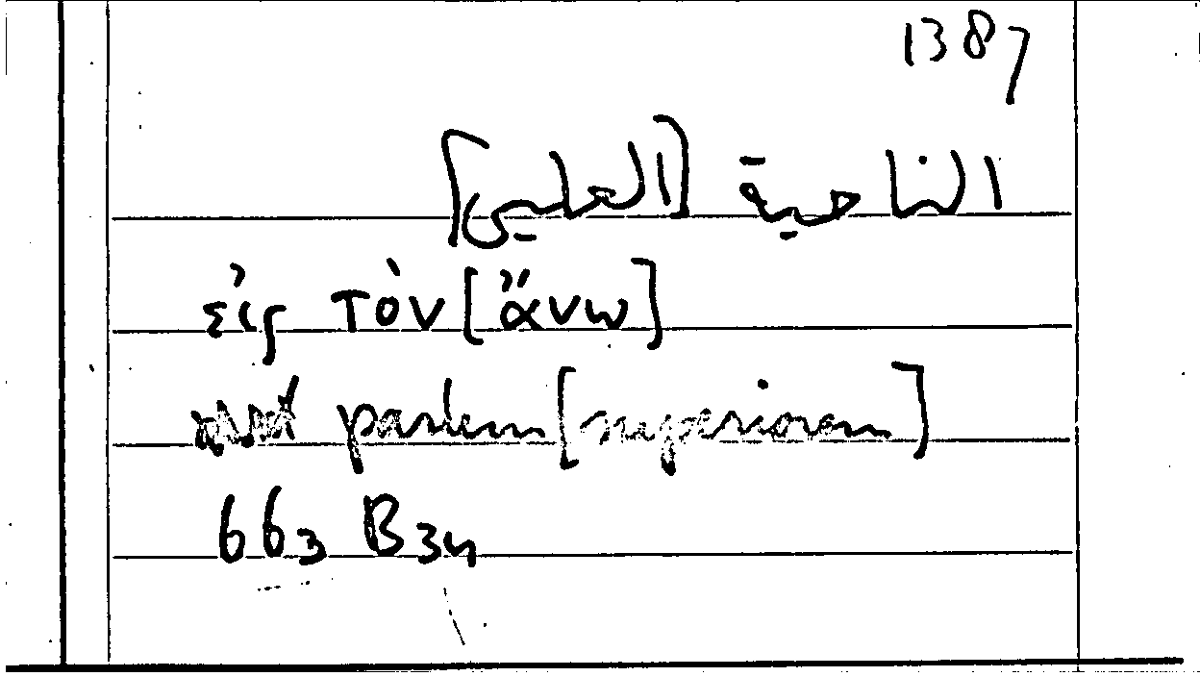 1387
الناحية [العلي]
εἰς τὸν [ἄνω]
partem [superiorem]
663 B34